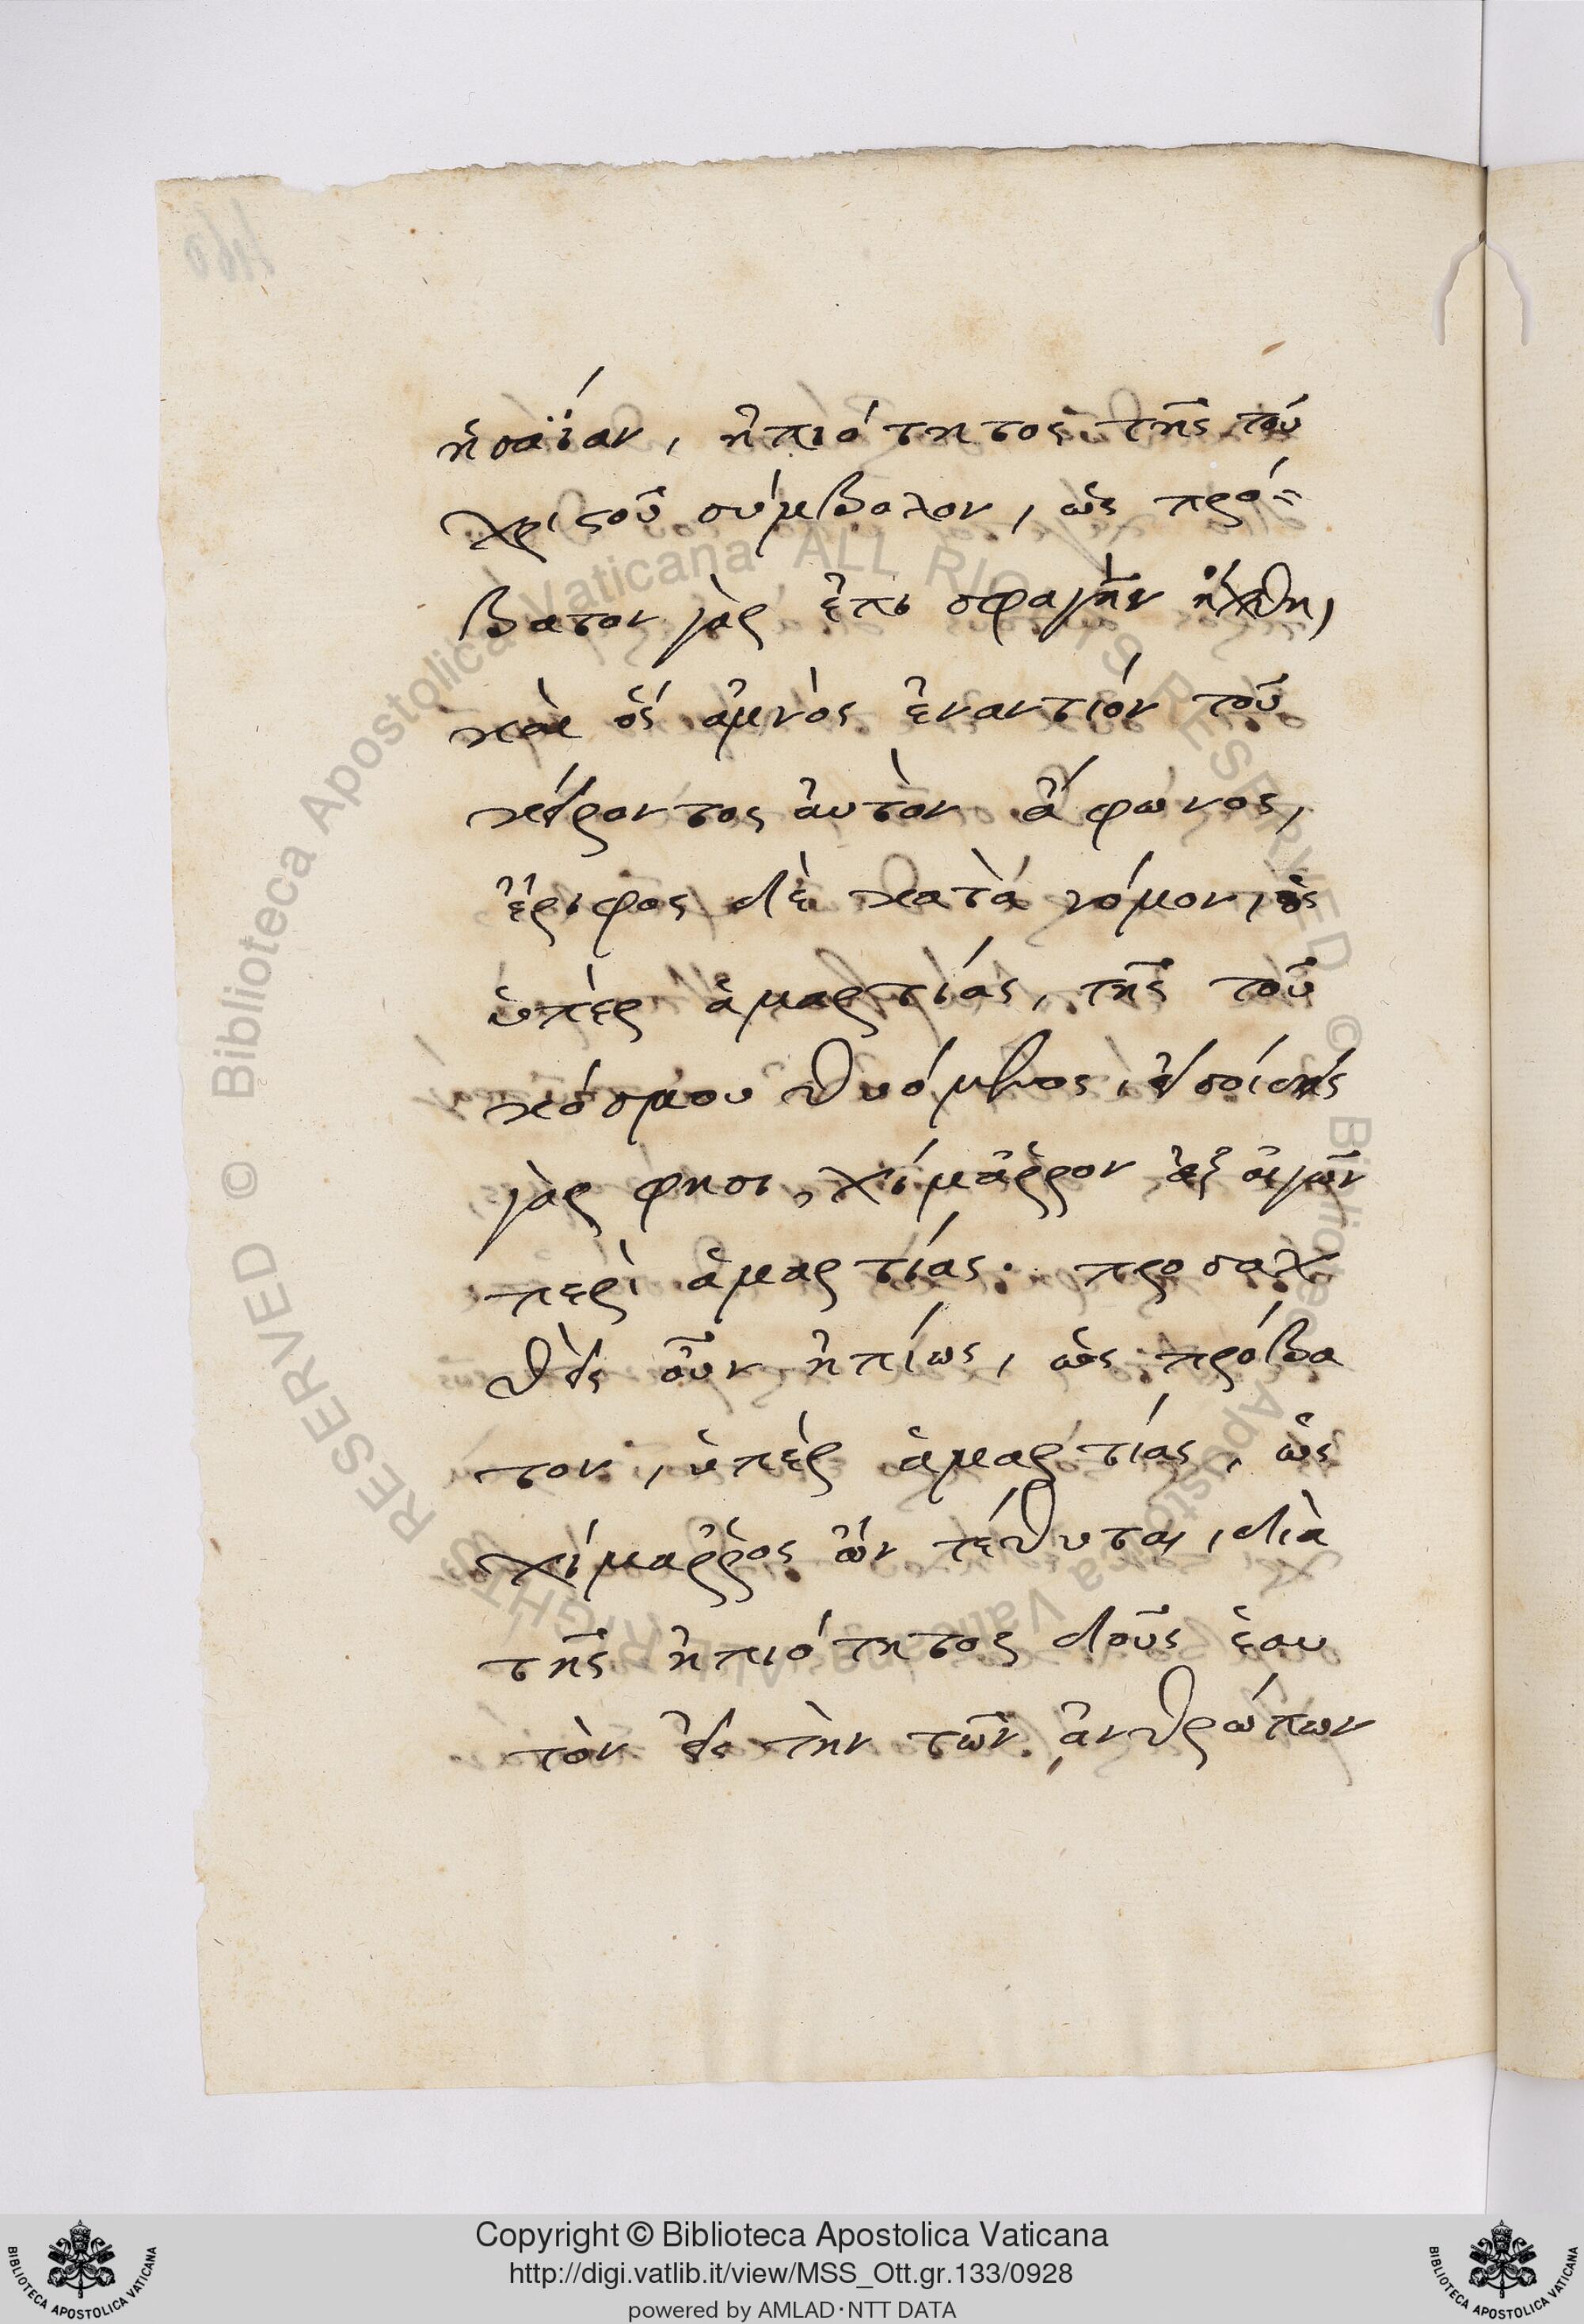 ἡσαΐαν, ἠπιότητος τῆς τοῦ
χριστοῦ σύμβολον, ὡς πρό-
βατον γὰρ ἐπι σφαγὴν ἤχθη,
καὶ ὡς ἀμνὸς ἐναντίον τοῦ
κείροντος ἀυτὸν ἄφωνος,
ἔριφος δὲ κατὰ νόμον, ὡς
ὑπὲρ ἁμαρτίας, τῆς τοῦ
κόσμου θυόμενος, εἰσοίσεις
γὰρ φησι, χίμαῤῥον ἐξ αἰγῶν
περὶ ἁμαρτίας. προσαχ
θεὶς οὖν ἠπίως, ὡς πρόβα
τον, ὑπὲρ ἁμαρτίας, ὡς
χίμαῤῥος ὢν τέθυται, διὰ
τῆς ἠπιότητος δοῦς ἑαυ
τὸν εἰς τὴν τῶν ἀνθρώπων
Copyright © Biblioteca Apostolica Vaticana
http://digi.vatlib.it/view/MSS_Ott.gr.133/0928
powered by AMLAD·NTT DATA
BIBLIOTECA APOSTOLICA VATICANA
BIBLIOTECA APOSTOLICA VATICANA
© Biblioteca Apostolica Vaticana ALL RIGHTS RESERVED © Biblioteca Apostolica Vaticana ALL RIGHTS RESERVED